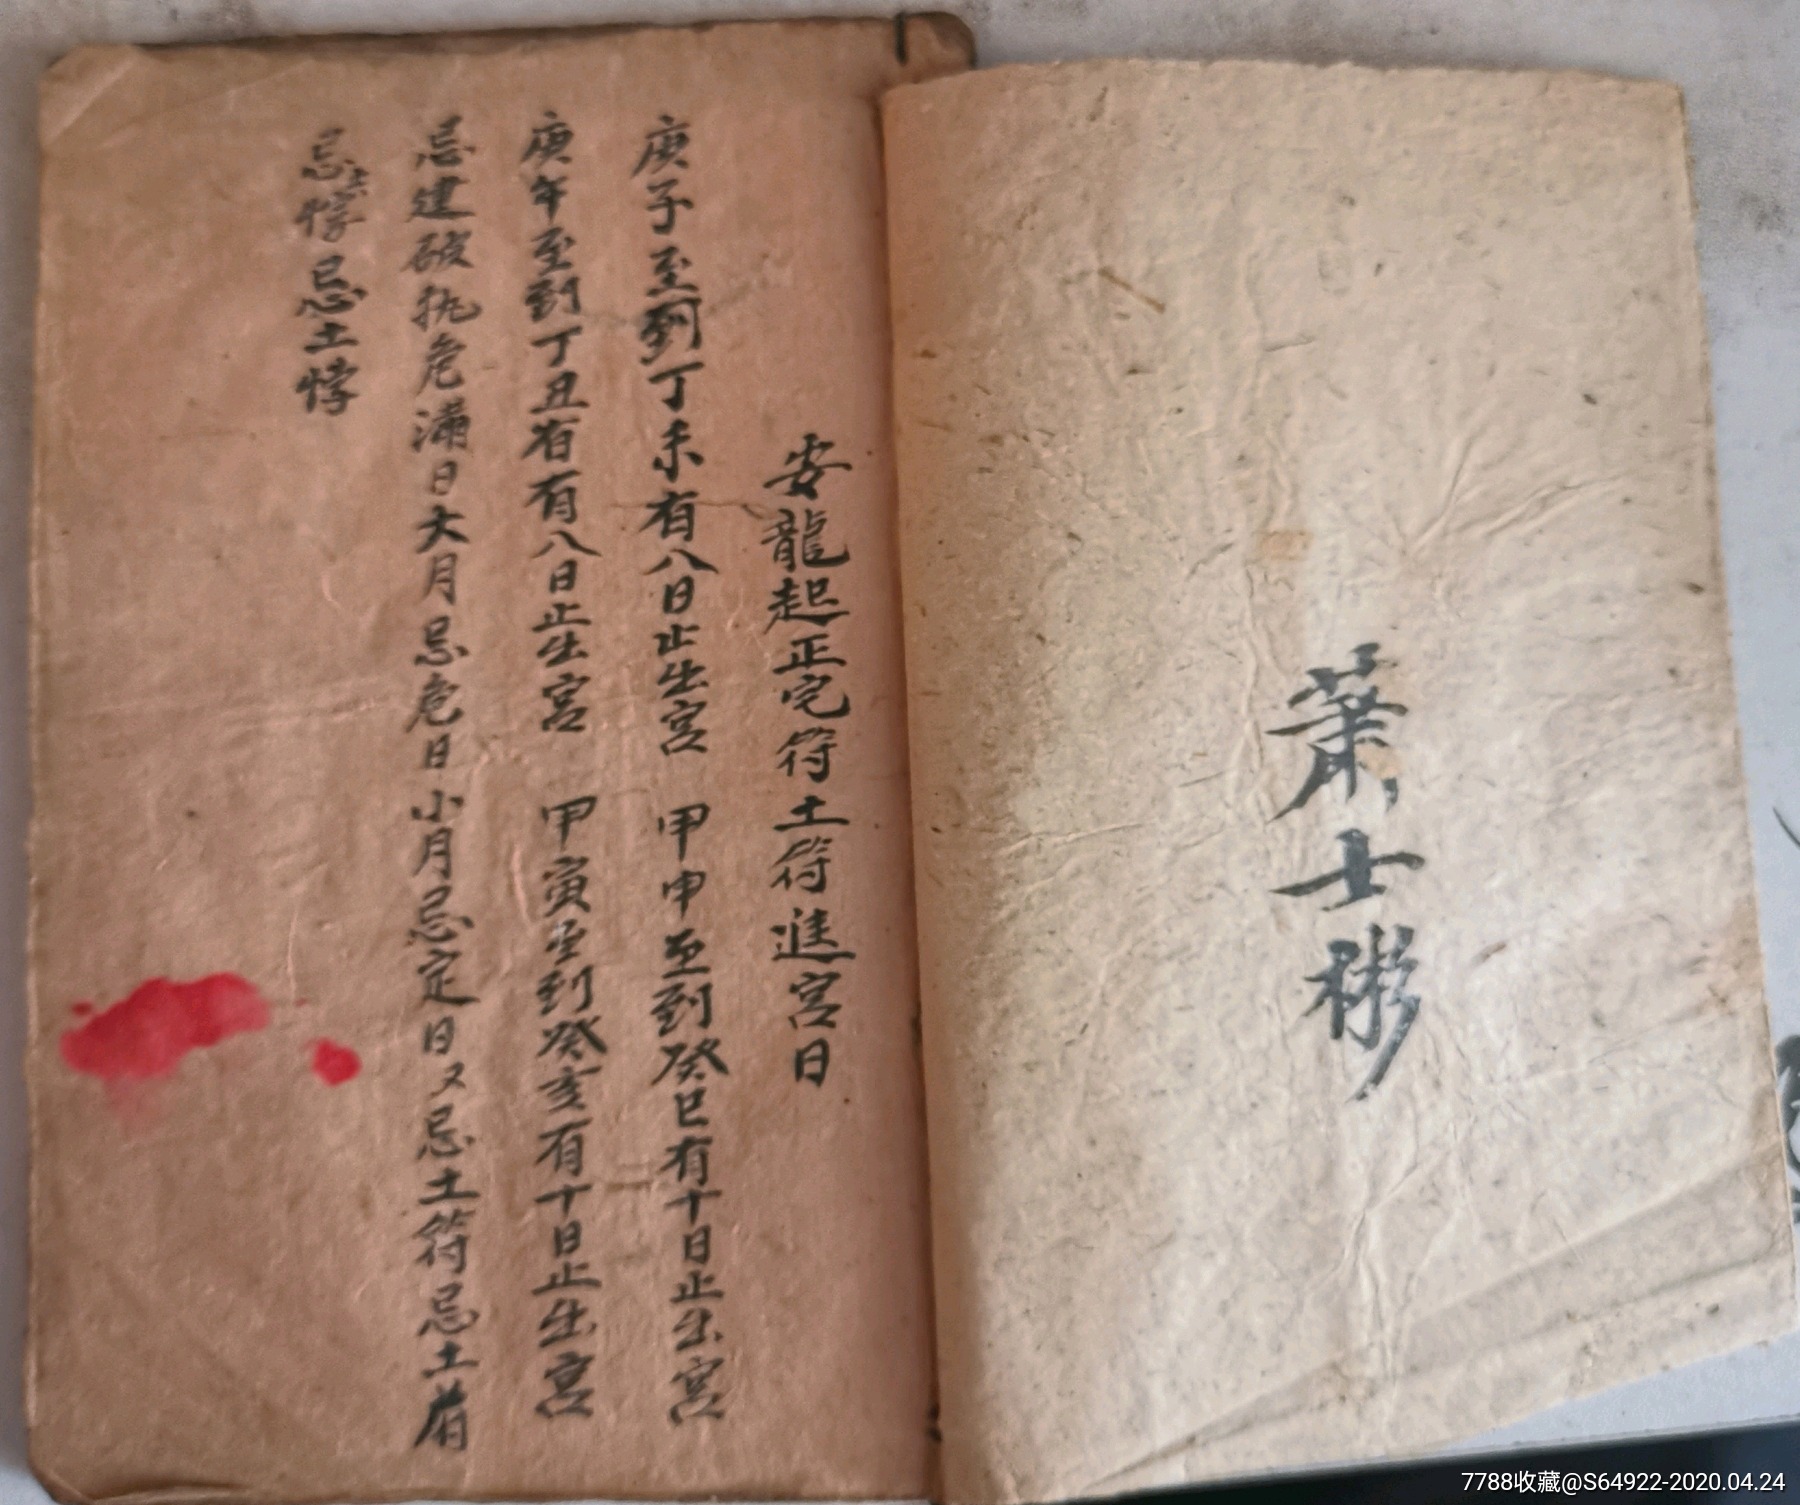 蕭士彬
安龍起正宅符土符進宮日
庚子至到丁未有八日止出宮 甲申至到癸巳有十日止出宮
庚午至到丁丑有有八日止出宮 甲寅至到癸亥有十日止出宮
忌建破执危滿日大月忌危日小月忌定日又忌土符忌土府
忌土悖忌土悖
7788收藏@S64922-2020.04.24